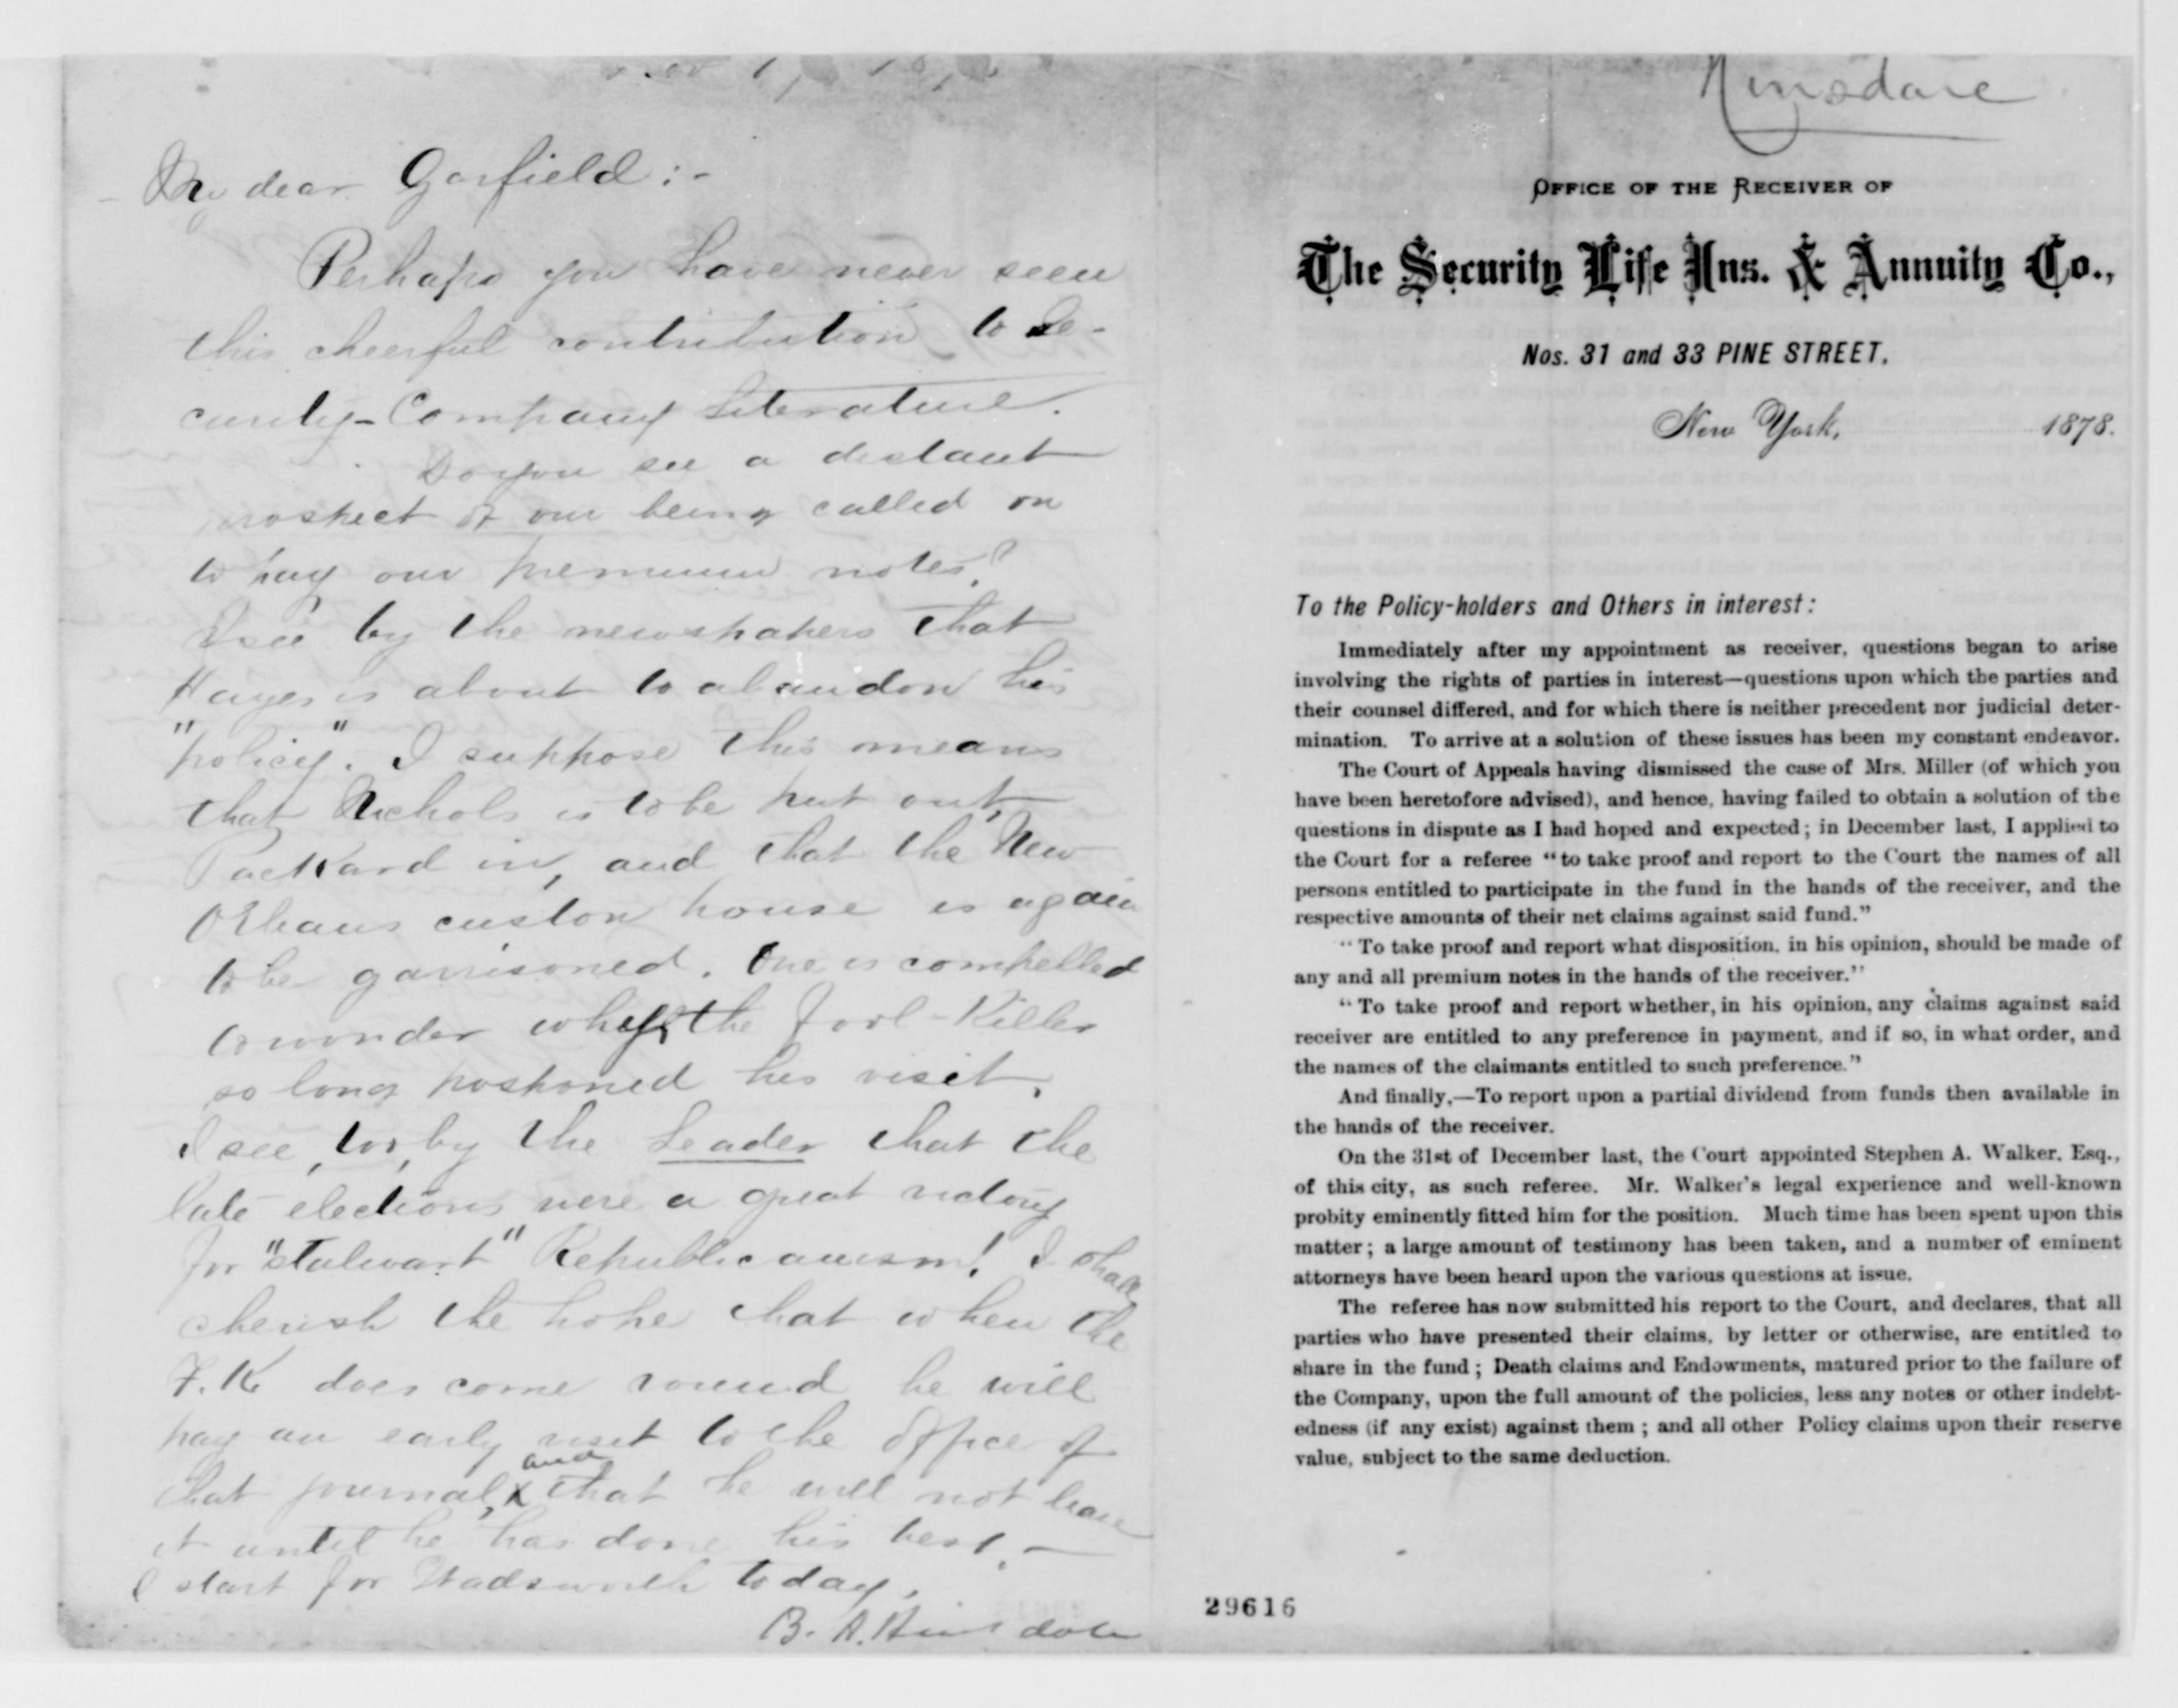 My dear Garfield :-
Perhaps you have never seen
this cheerful contribution to Se-
curity-Company Literature.
Do you see a distant
prospect of our being called on
to pay our premium notes?
I see by the newspapers that
Hayes is about to abandon his
"policy". I suppose this means
that Nichols is to be put out,
Packard in, and that the New
Orleans custom house is again
to be garrisoned. One is compelled
to wonder why the Fool-Killer
so long postponed his visit.
I see, too, by the Leader that the
late elections were a great victory
for "stalwart" Republicanism! I shall
cherish the hope that when the
F. K. does come round he will
pay an early visit to the office of
that journal, and that he will not leave
it until he has done his best. —
I start for Wadsworth today.
B. A. Hinsdale
Hinsdale
OFFICE OF THE RECEIVER OF
The Security Life Ins. & Annuity Co.,
Nos. 31 and 33 PINE STREET,
New York, 1878.
To the Policy-holders and Others in interest :
Immediately after my appointment as receiver, questions began to arise
involving the rights of parties in interest—questions upon which the parties and
their counsel differed, and for which there is neither precedent nor judicial deter-
mination. To arrive at a solution of these issues has been my constant endeavor.
The Court of Appeals having dismissed the case of Mrs. Miller (of which you
have been heretofore advised), and hence, having failed to obtain a solution of the
questions in dispute as I had hoped and expected ; in December last, I applied to
the Court for a referee "to take proof and report to the Court the names of all
persons entitled to participate in the fund in the hands of the receiver, and the
respective amounts of their net claims against said fund."
"To take proof and report what disposition, in his opinion, should be made of
any and all premium notes in the hands of the receiver."
"To take proof and report whether, in his opinion, any claims against said
receiver are entitled to any preference in payment, and if so, in what order, and
the names of the claimants entitled to such preference."
And finally,—To report upon a partial dividend from funds then available in
the hands of the receiver.
On the 31st of December last, the Court appointed Stephen A. Walker, Esq.,
of this city, as such referee. Mr. Walker's legal experience and well-known
probity eminently fitted him for the position. Much time has been spent upon this
matter ; a large amount of testimony has been taken, and a number of eminent
attorneys have been heard upon the various questions at issue.
The referee has now submitted his report to the Court, and declares, that all
parties who have presented their claims, by letter or otherwise, are entitled to
share in the fund ; Death claims and Endowments, matured prior to the failure of
the Company, upon the full amount of the policies, less any notes or other indebt-
edness (if any exist) against them ; and all other Policy claims upon their reserve
value, subject to the same deduction.
29616